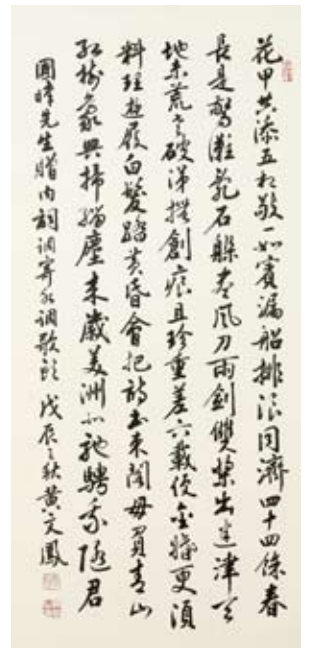 花甲共添五相敬一如賓漏船排浪同濟四十四餘春
長是驚灘亂石躲盡風刀雨劍雙槳出迷津天
地未荒老破涕撫創痕且珍重差六載便金婚更須
料理遊屐白髮踏黃昏會把詩書束閣毋負青山
紅樹豪興掃緇塵來歲美洲北馳騁我隨君
先生贈內詞調寄水調歌頭 戊辰之秋黃文鳳